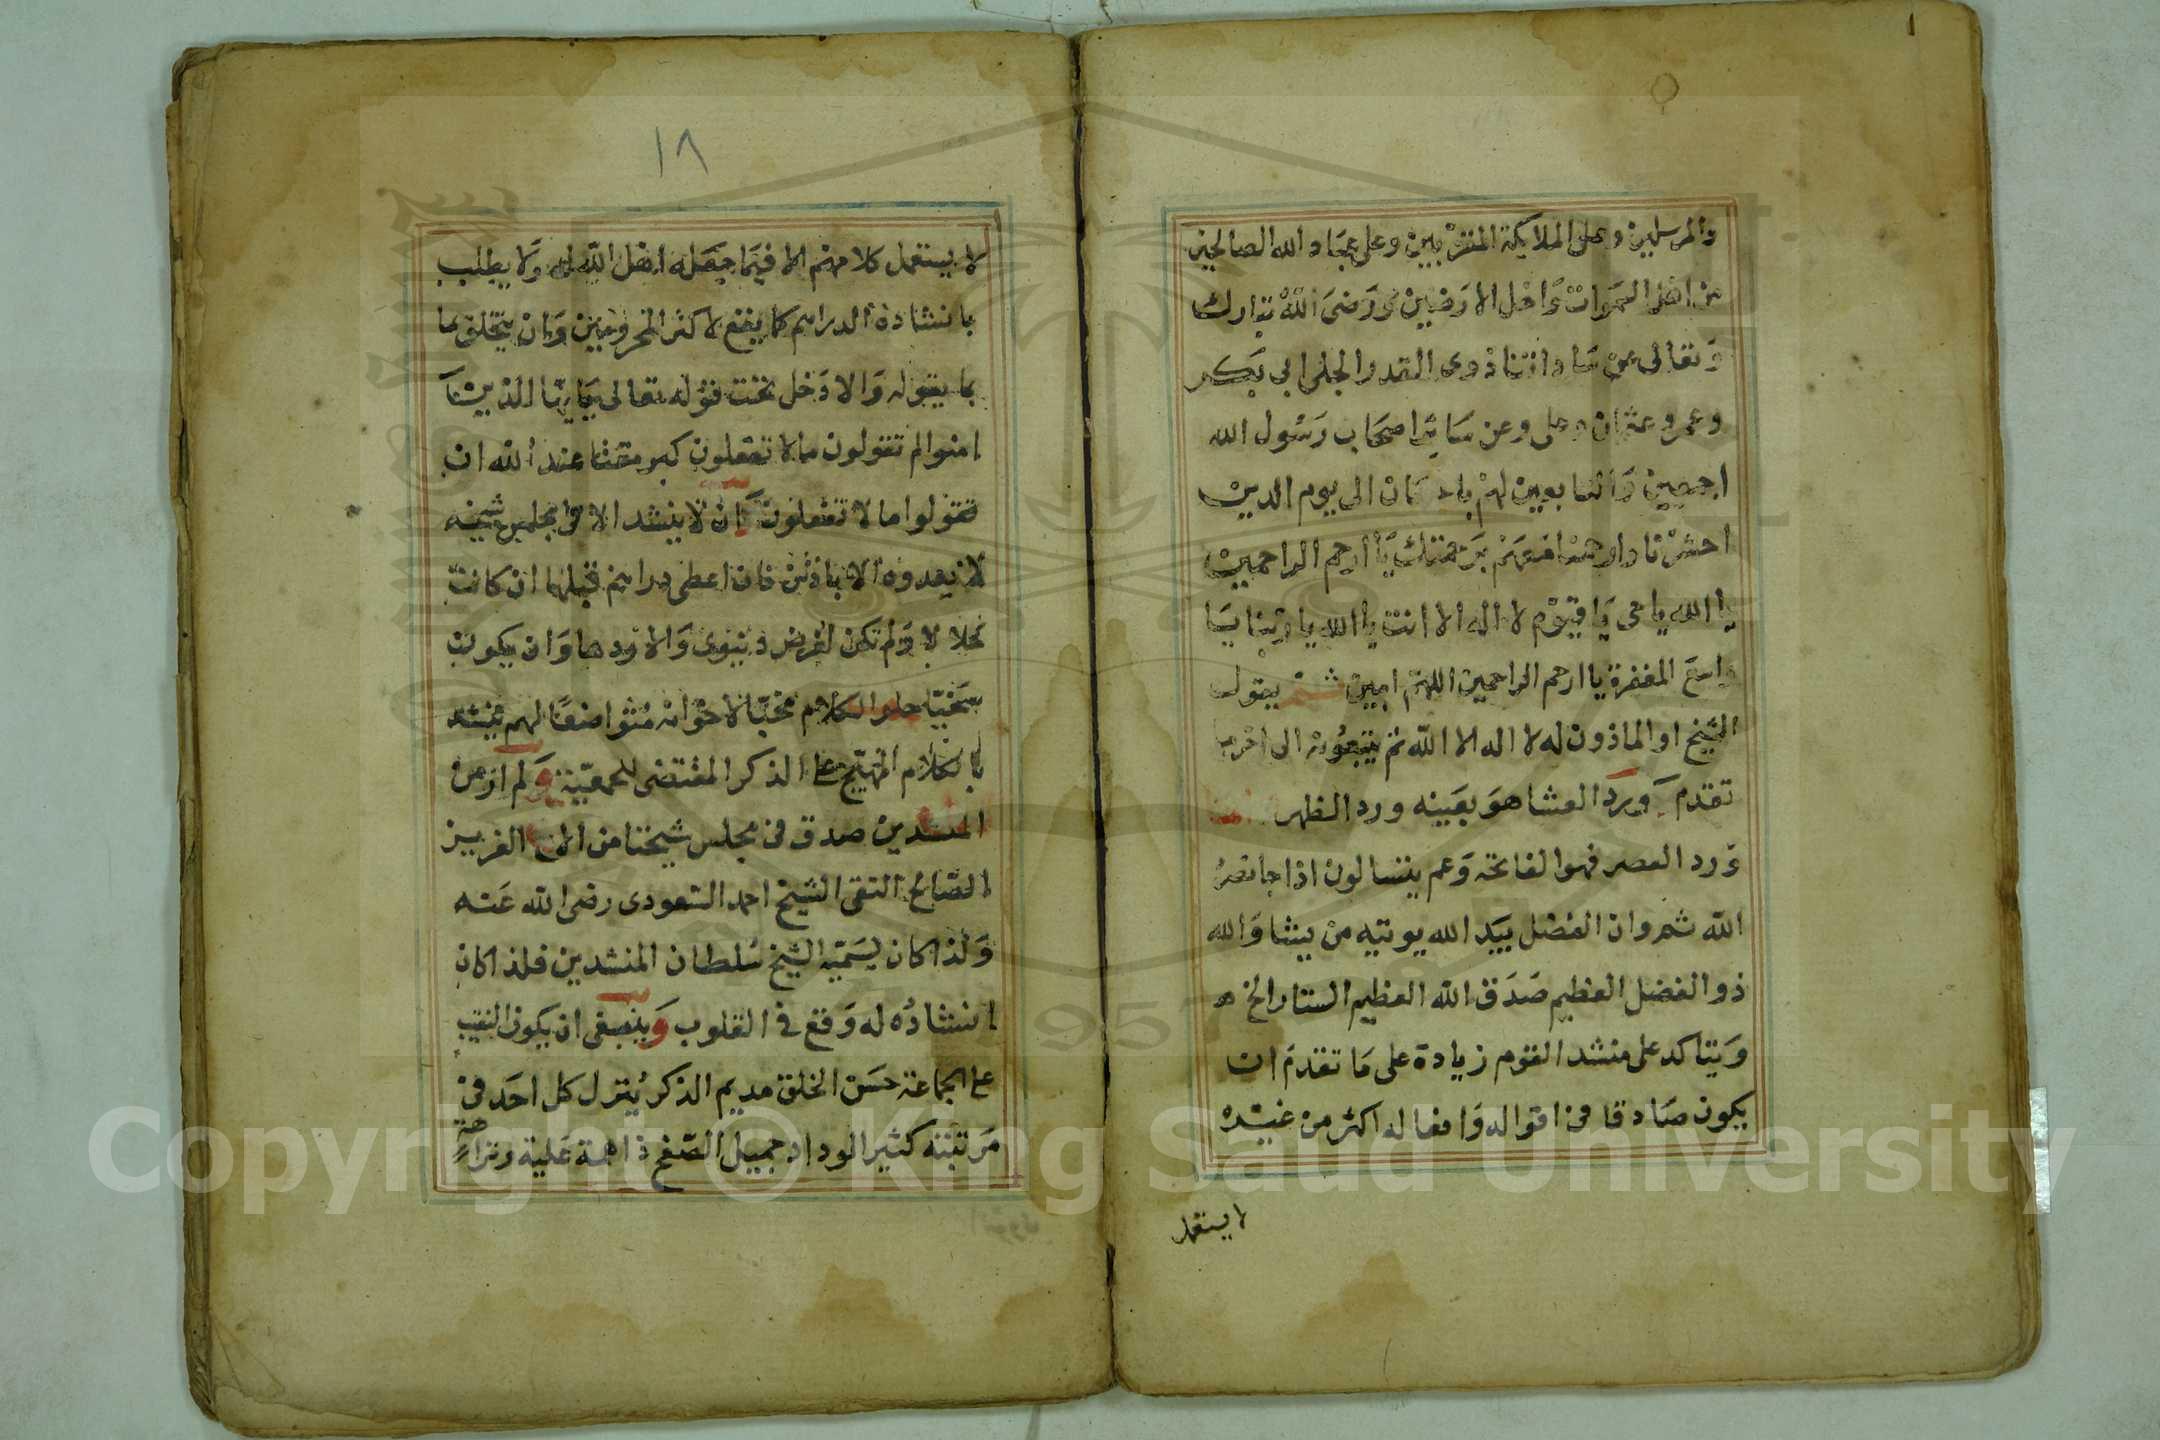 والمرسلين وعلى الملايكة المقربين وعلى عباد الله الصالحين
من اهل السموات واهل الارضين ورضى الله تبارك
وتعالى عن ساداتنا ذوى القدر الجلى ابى بكر
وعمر وعثمان وعلى وعن ساير اصحاب رسول الله
اجمعين والتابعين لهم باحسان الى يوم الدين
احشرنا وارحمنا معهم برحمتك يا ارحم الراحمين
يا الله يا حى يا قيوم لا اله الا انت يا الله يا ربنا يا
واسع المغفرة يا ارحم الراحمين اللهم امين ثم يقول
الشيخ او الماذون له لا اله الا الله ثم يتبعونه الى اخر ما
تقدم وورد العشا هو بعينه ورد الظهر
ورد العصر فهو الفاتحة وعم يتسالون اذا جا نصر
الله ثم وان الفضل بيد الله يوتيه من يشا والله
ذو الفضل العظيم صدق الله العظيم الستار الخ
ويتاكد على منشد القوم زيادة على ما تقدم ان
يكون صادقا فى اقواله وافعاله اكثر من غيره
لا يستعمل
١٨
لا يستعمل كلامهم الا فيما جعله اهل الله له ولا يطلب
بانشاده الدراهم كما يقع لاكثر المحرومين وان يتخلق بما
بما يقوله والا دخل تحت قوله تعالى يا ايها الذين
امنوا لم تقولون ما لا تفعلون كبر مقتا عند الله ان
تقولوا ما لا تفعلون وان لا ينشد الا فى مجلس شيخه
لا يعدوه الا باذن فان اعطى دراهم قبلها ان كانت
حلالا ولم تكن لغرض دنيوى والا ردها وان يكون
سخيا حلو الكلام محبا لاخوانه متواضعا لهم ينشد
بالكلام المهيج على الذكر المقتضى للجمعية ولم ار من
المنشدين صدق فى مجلس شيخنا من الاخ العزيز
الصالح التقى الشيخ احمد الشعودى رضى الله عنه
ولذا كان يسميه الشيخ سلطان المنشدين فلذا كان
انشاده له وقع فى القلوب وينبغى ان يكون النقيب
على الجماعة حسن الخلق مديم الذكر ينزل كل احد فى
مرتبته كثير الوداد جميل الصفح ذا همة علية ونزاهة
Copyright © King Saud University
1957